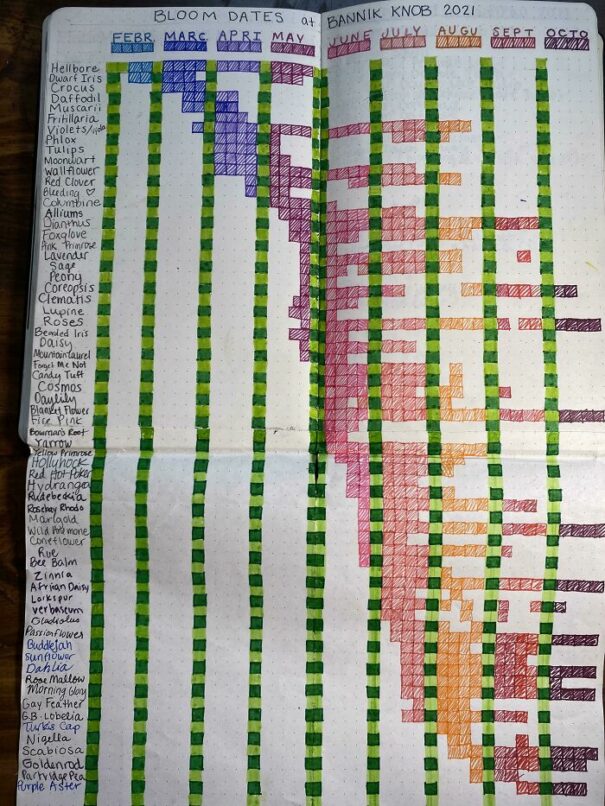 BLOOM DATES at BANNIK KNOB 2021
FEBR MARC APRI MAY JUNE JULY AUGU SEPT OCTO
Hellbore
Dwarf Iris
Crocus
Daffodil
Muscarii
Fritillaria
Violets/
Phlox
Tulips
Moonwart
Wallflower
Red Clover
Bleeding ♡
Columbine
Alliums
Dianthus
Foxglove
Pink Primrose
Lavender
Sage
Peony
Coreopsis
Clematis
Lupine
Roses
Bearded Iris
Daisy
Mountain Laurel
Forget Me Not
Candy Tuft
Cosmos
Daylily
Blanket Flower
Fire Pink
Bowman's Root
Yarrow
Yellow Primrose
Hollyhock
Red Hot Poker
Hydrangea
Rudebeckia
Rosebay Rhodo
Marigold
Wild
Coneflower
Rue
Bee Balm
Zinnia
African Daisy
Larkspur
Verbascum
Gladiolus
Passionflower
Buddlejah
Sunflower
Dahlia
Rose Mallow
Morning Glory
Gay Feather
G.B. Lobelia
Turks Cap
Nigella
Scabiosa
Goldenrod
Partridge Pea
Purple Aster